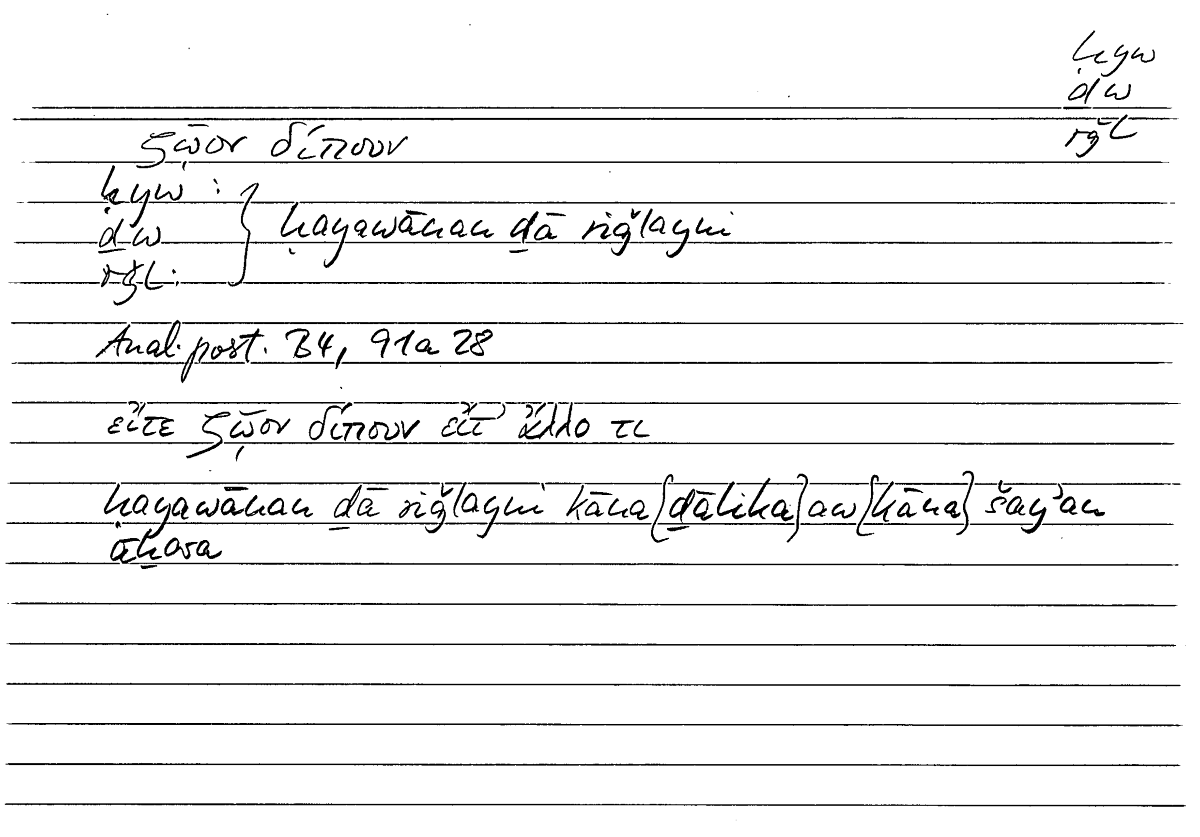 ḥyw
ḏw
rǧl
ζῷον δίπουν
ḥyw :
ḏw
rǧl :
ḥayawānan ḏā riǧlayni
Anal. post. B4, 91a 28
εἴτε ζῷον δίπουν εἴτ' ἄλλο τι
ḥayawānan ḏā riǧlayni kāna {ḏālika} aw {kāna} šayʾan
āḫara